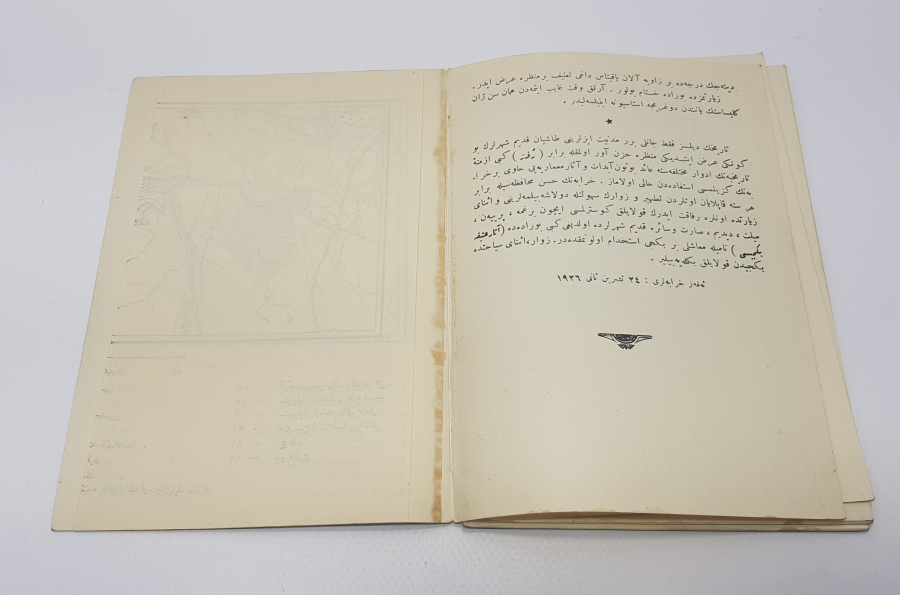 دینه‌جك درجه‌ده بو زاویه آلان یاقیناس داغی لطیف بر منظره عرض ایدر .
زیارتمزده بوراده ختام بولور . آرتق وقت غایب ایتمه‌دن همان سن ژان
کلیساسنك یانندن دوغریجه استاسیونه اینیلمه‌لیدر .
★
تاریخك دیلسز فقط جانلی برر مدنیت ایزلرینی طاشیان قدیم شهرلرك بو
کونکی عرض ایتدیکی منظره حزن آور اولمقله برابر ( ئه‌فه‌ز ) کبی ازمنهٔ
تاریخیه‌نك ادوار مختلفه‌سنه عائد بوتون آبدات و آثار معماریه‌یی حاوی بر خرا
به‌نك کزیلمسی استفاده‌دن خالی اولاماز . خرابه‌نك حسن محافظه‌سیله برابر
هر سنه قاپلایان اوتلردن تطهیر و زوارك سهولتله دولاشه‌بیلمه‌لرینی و اثنای
زیارتده اونلره رفاقت ایدرك قولایلق کوسترلمسی ایچون برغمه ، پرییه‌ن ،
میلت ، دیدیم ، صارت وسائره قدیم شهرلرده اولدیغی کبی بوراده‌ده ( آثار عتیقه
بکجیسی ) نامیله معاشلی بر بکجی استخدام اولونمقده‌در . زوار ، اثنای سیاحتنده
بکجیدن قولایلق بکله‌یه‌بیلیر .
ئه‌فه‌ز خرابه‌لری : ٢٤ تشرین ثانی ١٩٢٦